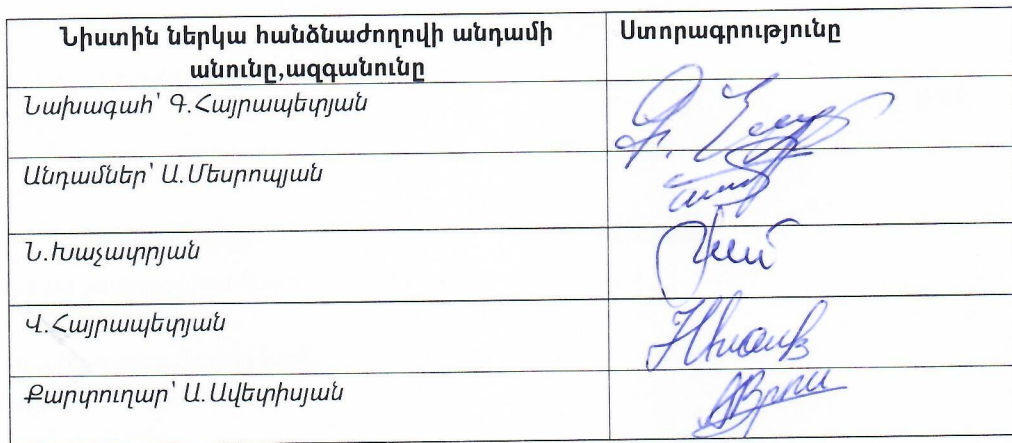 Նիստին ներկա հանձնաժողովի անդամի
անունը,ազգանունը
Ստորագրությունը
Նախագահ՝ Գ.Հայրապետյան
Անդամներ՝ Ա.Մեսրոպյան
Ն.Խաչատրյան
Վ.Հայրապետյան
Քարտուղար՝ Ա.Ավետիսյան